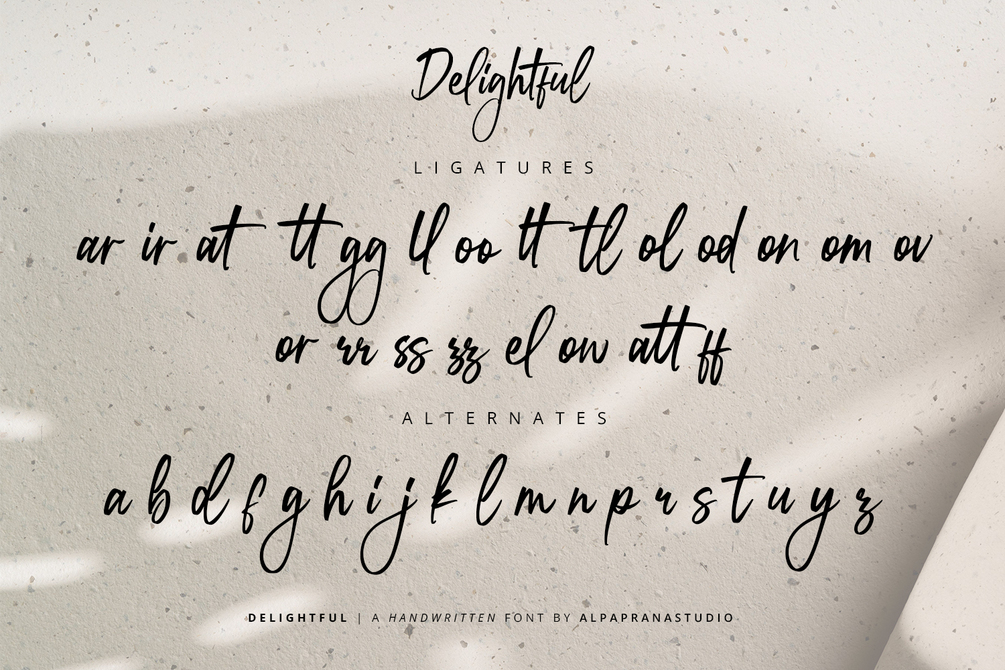 Delightful
LIGATURES
ar ir at tt gg ll oo tt tl ol od on om ov
or rr ss zz el ow att ff
ALTERNATES
a b d f g h i j k l m n p r s t u y z
DELIGHTFUL | A HANDWRITTEN FONT BY ALPAPRANASTUDIO